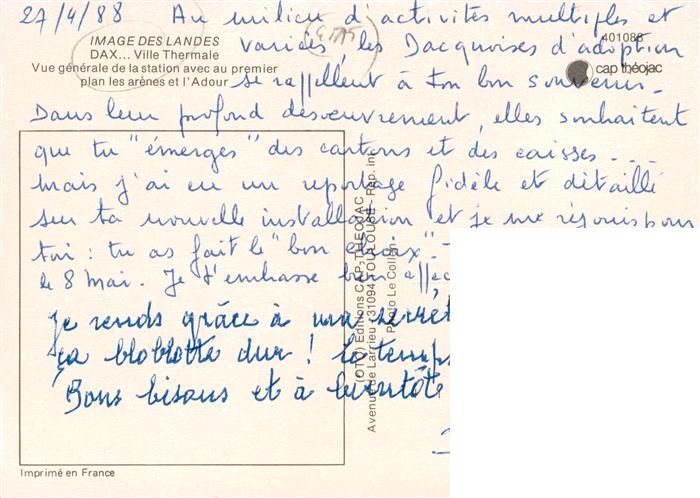 27/4/88 Au milieu d'activités multiples et
IMAGE DES LANDES
DAX... Ville Thermale
Vue générale de la station avec au premier
plan les arènes et l'Adour
401088
cap théojac
variées, les Dacquoises d'adoption
se rappellent à ton bon souvenir.
Dans leur profond désoeuvrement, elles souhaitent
que tu "émerges" des cartons et des caisses....
Mais j'ai eu un reportage fidèle et détaillé
sur ta nouvelle installation et je me réjouis pour
toi : tu as fait le "bon choix".
le 8 Mai. Je t'embrasse bien affec
Je rends grâce à ma
ça bloblotte dur ! le temps
Bons bisous et à bientôt
(OTO) Editions CAP-THEOJAC
Avenue de Larrieu - 31094 TOULOUSE - Rep. int.
Photo Le Collen
Imprimé en France